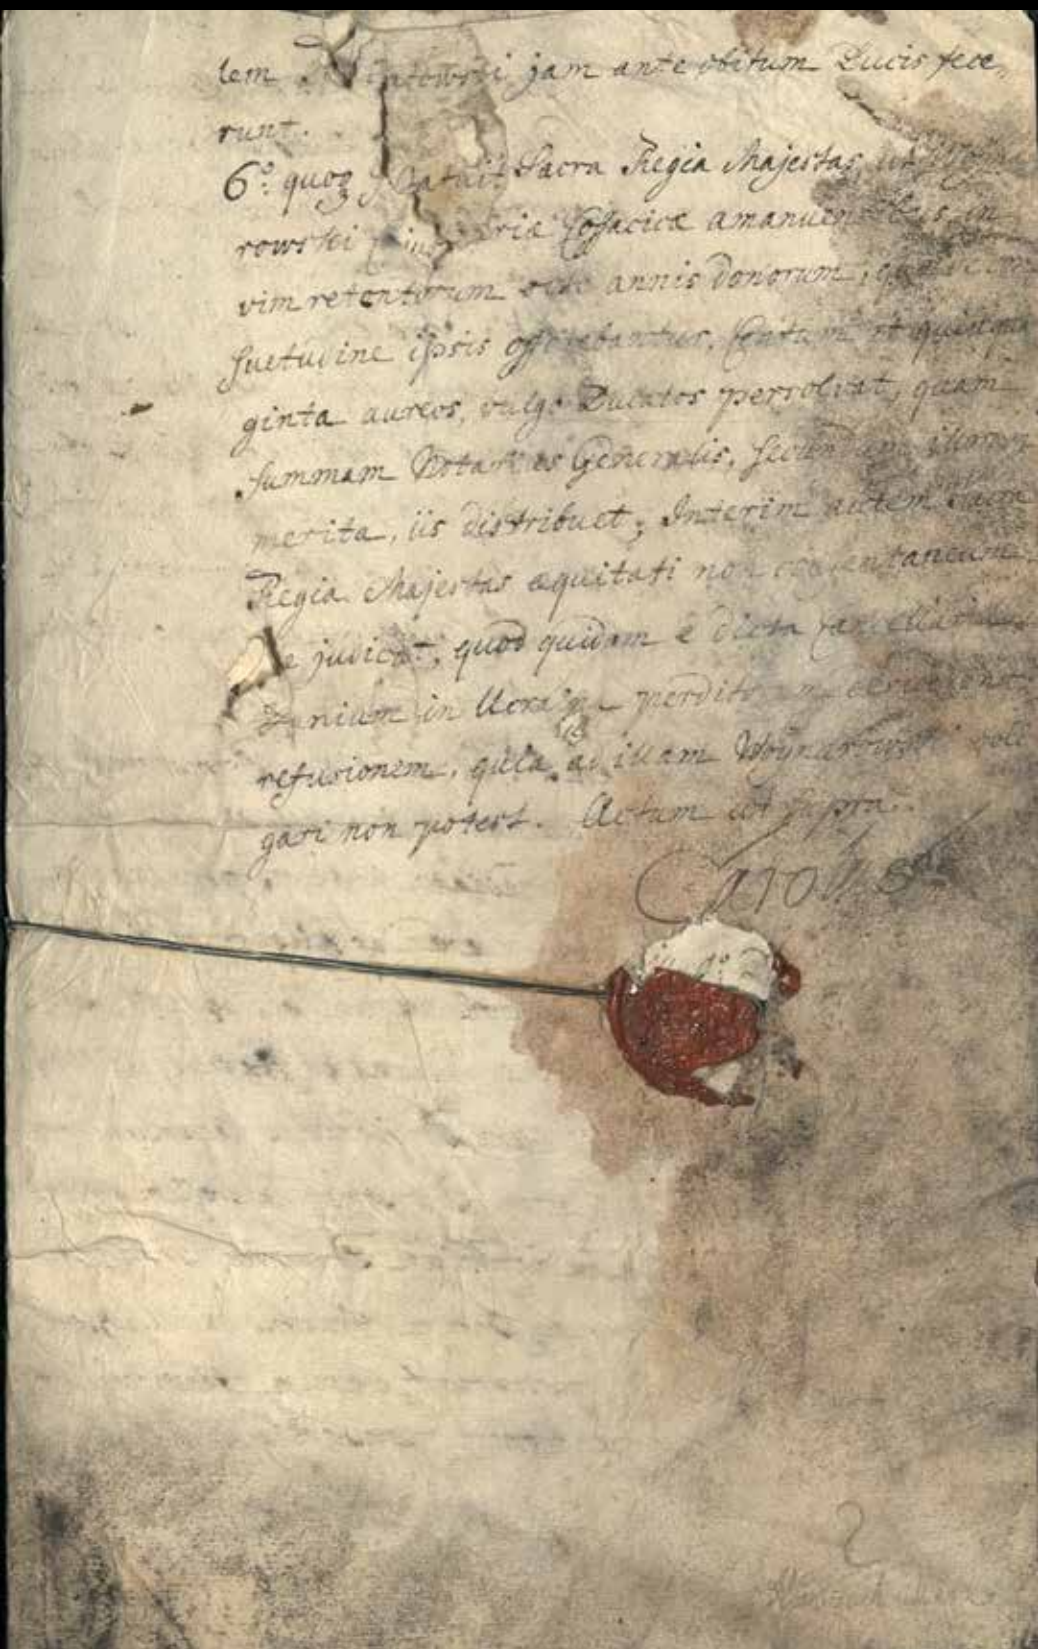 lem jam ante obitum Ducis fece„
runt.
6º. quoq Statuit Sacra Regia Majestas, ut
rowski Cossacicæ amanuensibus in
vim retentorum annis donorum,
suetudine ipsis offerebantur, Centum et quinqua
ginta aureos, vulgo Ducatos persolvat, quam
summam Notarius Generalis, secundum illorum
merita, iis distribuet; Interim autem Sacra
Regia Majestas æquitati non consentaneum
e judicat, quod quidam e dicta
in Ucraina perditorum
refusionem, quia ad illam Woynarowski obli
gari non potest. Actum ut supra.
Carolus